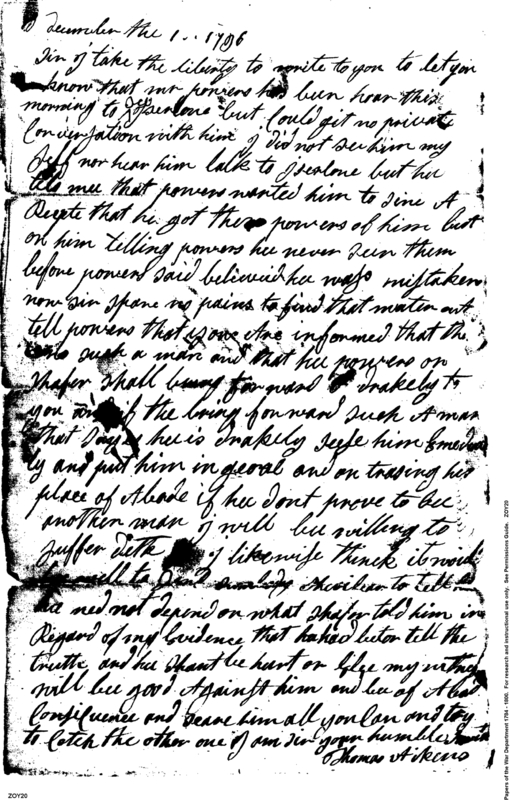 December the 1.. 1796
Sir I take the liberty to write to you to let you
know that mr powers has been hear this
morning to but Could git no private
Conversation with him I did not see him my
Self nor hear him talk to but hee
tels mee that powers wanted him to sine A
that he got the powers of him but
on him telling powers hee never seen them
before powers said believed hee was mistaken
now sir spare no pains to find that mater out
tell powers that you Are informed that the
such a man and that hee powers or
Shafer Shall bring forward to
you and if the bring forward such A man
that Says hee is Drakely him
ly and put him in geoal and on trasing his
place of Abode if hee dont prove to bee
another man I will bee willing to
suffer Deth I likewise think it would
well to to tell
hee ned not depend on what Shafer told him in
Regard of my Evidence that hee had beter tell the
truth and hee Shant be hurt or Else my
will bee good Against him and bee of A bad
Consequence and Scare him all you Can and try
to Catch the other one I am Sir your humble
Thomas Aikens
ZOY20
Papers of the War Department 1784 - 1800. For research and instructional use only. See Permissions Guide. ZOY20